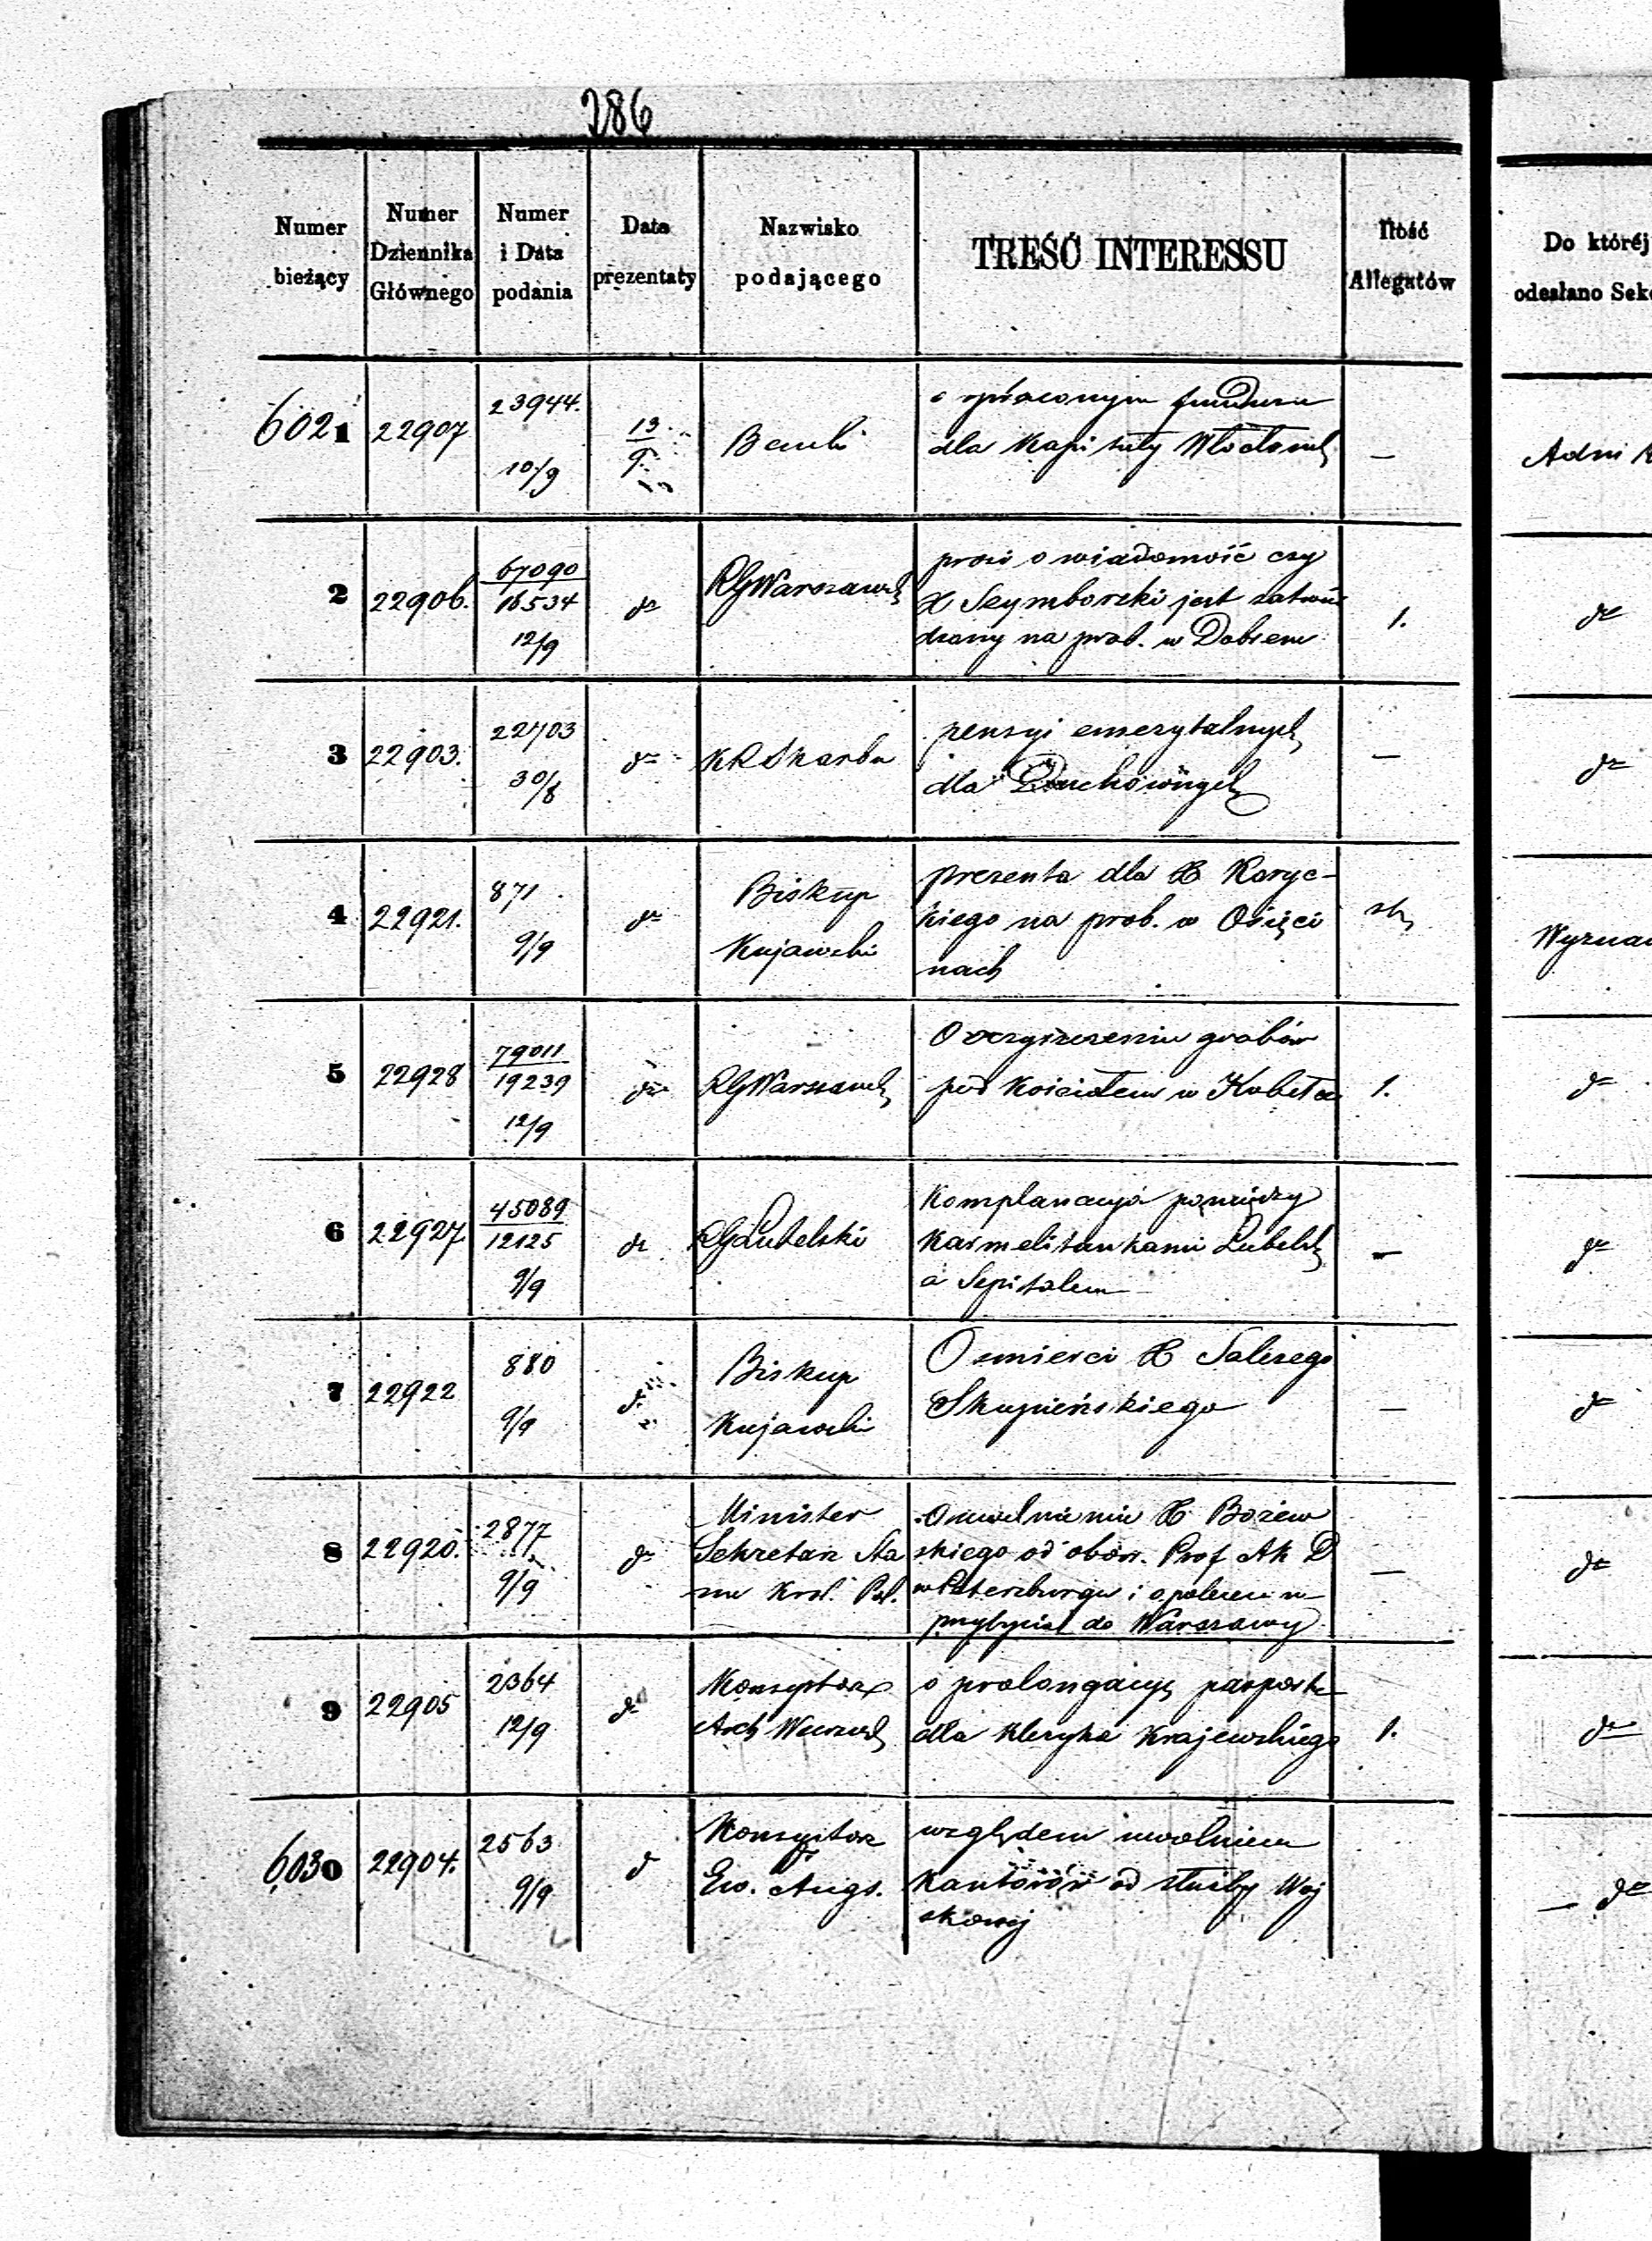 286
Numer bieżący
Numer Dziennika Głównego
Numer i Data podania
Data prezentaty
Nazwisko podającego
TREŚĆ INTERESSU
Ilość Allegatów
Do któréj
odesłano Sek
6021 22907 23944. 10/9 13/9
dla Kapituły
—
Adm
2 22906. 67090/16534 12/9 do RGWarszawsk
prosi o wiadomość czy
X Szymborski jest zatwier
dzony na prob. w Dobrem
1.
do
3 22903. 22703 30/8 do KRSkarbu
pensyi emerytalnych
dla Duchownych
—
do
4 22921. 871 9/9 do
Biskup
Kujawski
prezenta dla X Koryc-
kiego na prob. w Osięci
nach
Wyznań
5 22928 79011/19239 12/9 do RGWarszawsk
O oczyszczeniu grobów
pod Kościołem w Kobiełce
1.
do
6 22927 45089/12125 9/9 do RGLubelski
Komplanacyja pomiędzy
Karmelitankami Lubelsk
a Szpitalem
—
do
7 22922 880 9/9 do
Biskup
Kujawski
O śmierci X Salezego
Skupieńskiego
—
do
8 22920. 2877 9/9 do
Minister
Sekretarz Sta
nu Król. Pol.
O uwolnieniu X Bożew
skiego od obow. Prof Ak D
w Petersburgu i o poleceniu
przybycia do Warszawy
—
do
9 22905 2364 12/9 do
Konsystorz
Arch Warszaws
o prolongacyę pasportu
dla Kleryka Krajewskiego
1.
do
6030 22904. 2563 9/9 d
Konsystorz
Ew. Augs.
względem uwolnienia
Kantorów od służby Woj
skowej
— do